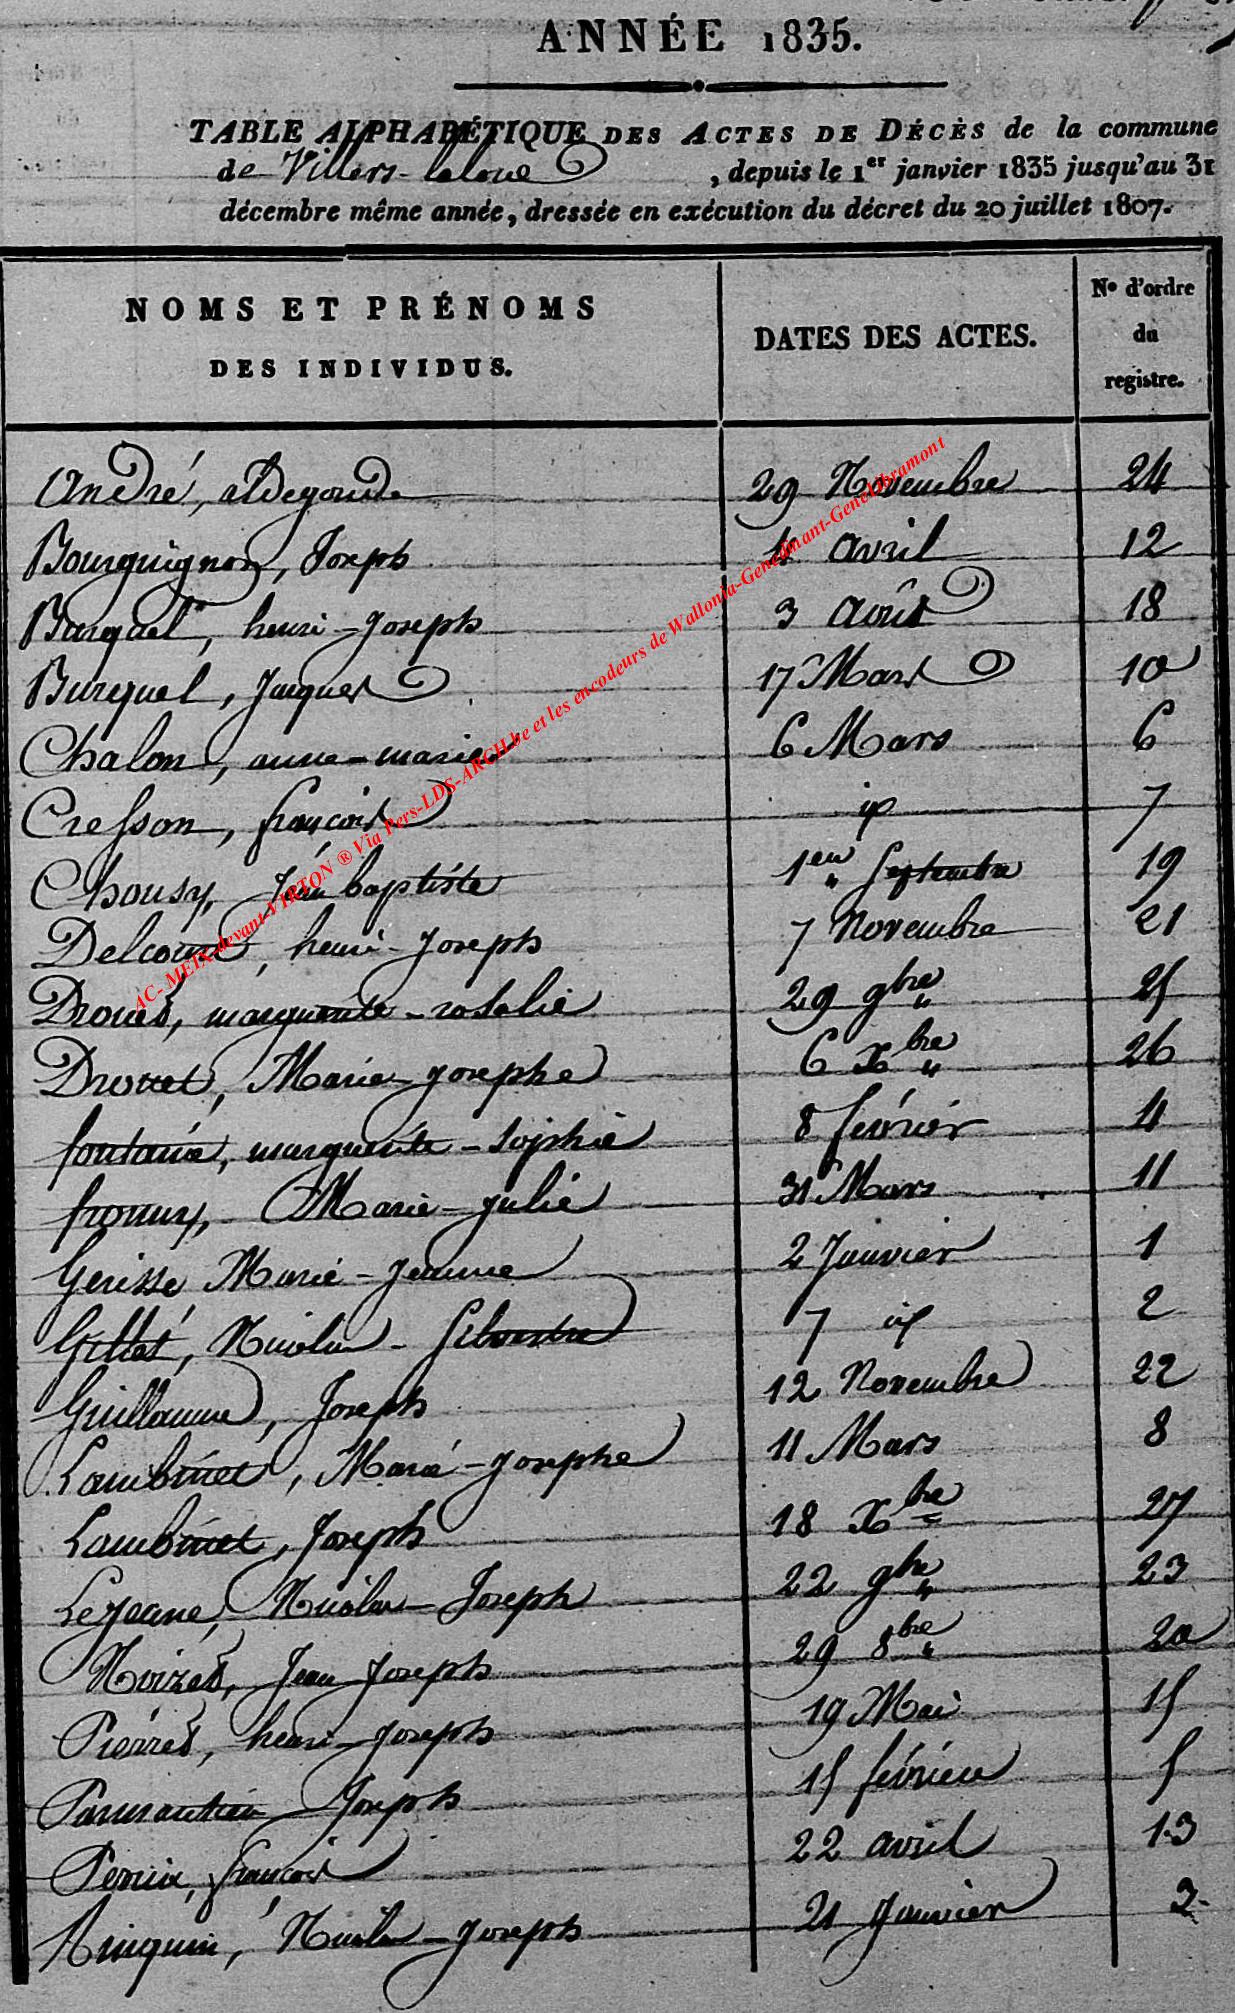 ANNÉE 1835.
TABLE ALPHABÉTIQUE DES ACTES DE DÉCÈS de la commune
de Villers-laloue, depuis le 1er janvier 1835 jusqu'au 31
décembre même année, dressée en exécution du décret du 20 juillet 1807.
NOMS ET PRÉNOMS DES INDIVIDUS. DATES DES ACTES. No d'ordre du registre.
André, aldegonde 29 Novembre 24
Bourguignon, Joseph 4 avril 12
henri-Joseph 3 Août 18
Burquel, Jacques 17 Mars 10
Chalon, anne-marie 6 Mars 6
Cresson, françois id 7
Chousy, Jean baptiste 1er Septembre 19
Delcourt, henri-Joseph 7 Novembre 21
Drouet, marguerite-rosalie 29 9bre 25
Drouet, Marie-josephe 6 Xbre 26
fontaine, marguerite-sophie 8 février 4
Marie-julie 31 Mars 11
Gerisse Marie-jeanne 2 Janvier 1
Gillet, Nicolas-Silvestre 7 id 2
Guillaume, Joseph 12 Novembre 22
Lambinet, Marie-josephe 11 Mars 8
Lambinet, Joseph 18 Xbre 27
Lejeane, Nicolas-Joseph 22 9bre 23
Noizet, Jean Joseph 29 8bre 20
Pierret, henri-Joseph 19 Mai 15
Parmentier Joseph 15 février 5
Perrin, françois 22 avril 13
Ringuin, Nicolas-Joseph 21 Janvier 3
AC- MEIX-devant-VIRTON ® Via Pers-LDS-ARCH.be et les encodeurs de Wallonia-Genedinant-GeneLibramont